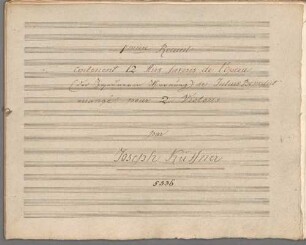 Recueil
contenant 12 Airs favoris de l'Opéra
de Julius Benedict
arrangés pour 2 Violons
par
Joseph Küffner
5336